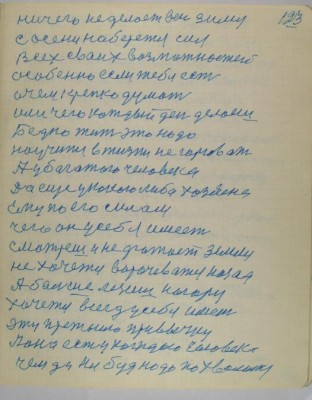 123
ничего не делает вси зиму
с осени наберетя сил
всех сваих возможностей
особенно если тебя ест
о чем крепко думат
или чего каждый ден делаеш
Бедно жит это надо
научитя в жизни не гороват
А у багатого человека
ему по его силам
чего он у себя имеет
смотреш и не фатает зимли
не хочетя ворочеватя назад
А болше лезиш на гору
хочетя всегда у себя имет
эту прежнию привычку
Она ест у каждого человека
чем да ни буд надо похвалитя